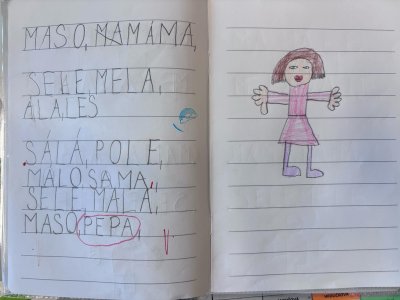 MASO, MAMÁMA,
SELE, MELA,
ALA, LES
SÁLÁ, POLE,
MÁLO SAMA,
SELE, MALÁ,
MASO, PEPA,